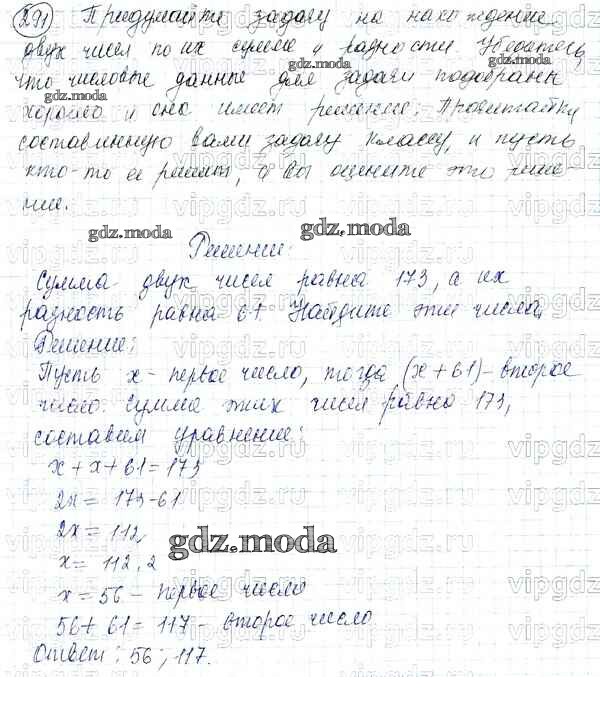 291 Придумайте задачу на нахождение
двух чисел по их сумме и разности. Убедитесь,
gdz.moda
что числовые данные для задачи подобраны
gdz.moda gdz.moda
хорошо и она имеет решение. Прочитайте
составленную вами задачу классу, и пусть
кто-то ее решит, а вы оцените это реше-
ние.
gdz.moda gdz.moda
Решение:
Сумма двух чисел равна 173, а их
разность равна 61. Найдите эти числа.
Решение:
Пусть x - первое число, тогда (x + 61) - второе
число. Сумма этих чисел равно 173,
составим уравнение:
x + x + 61 = 173
2x = 173 - 61
2x = 112
gdz.moda
x = 112 : 2
x = 56 - первое число
56 + 61 = 117 - второе число
Ответ: 56; 117.
vipgdz.ru